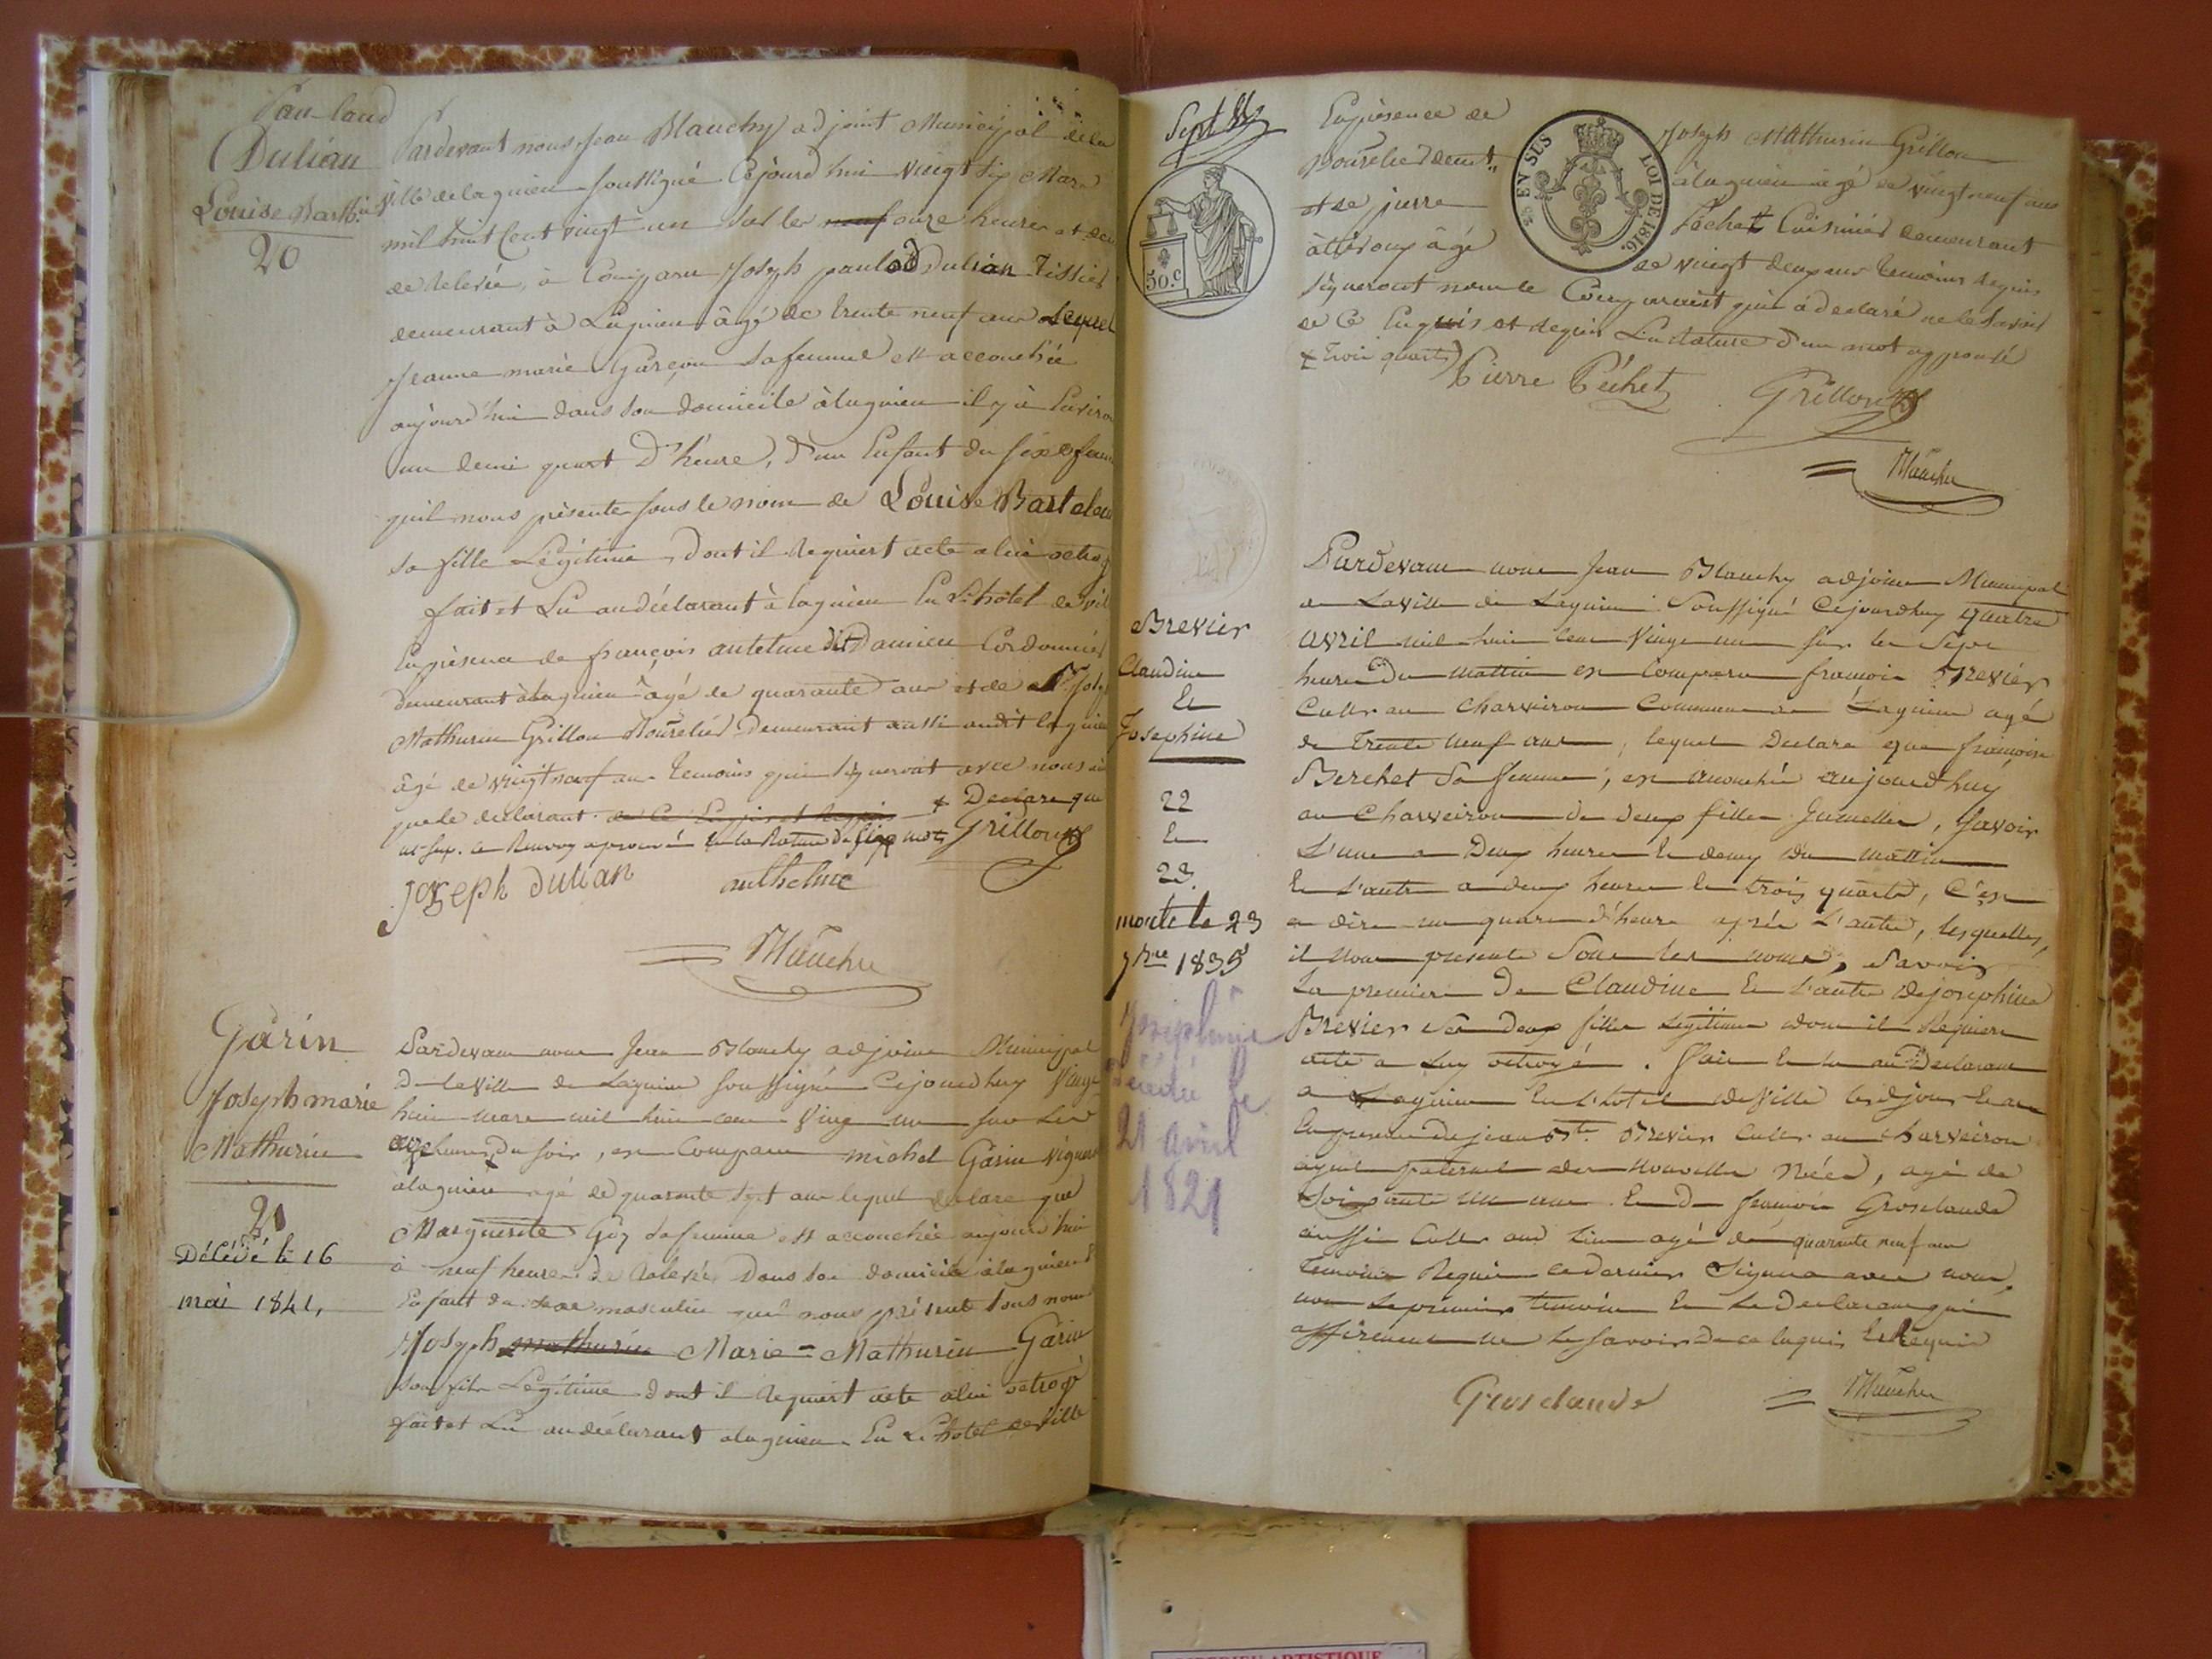 Dulian
Louise Barth.
20
Pardevant nous Jean Blanchy adjoint Municipal de la
Ville de lagnieu soussigné Cejourd'hui vingt six Mars
mil huit Cent vingt un sur les neuf onze heures et
de relevée, à Comparu Joseph paul Dulian Tissier
demeurant à Lagnieu âgé de trente neuf ans Lequel
Jeanne marie Garçon sa femme est accouchée
aujourd'hui dans son domicile à lagnieu il y à Environ
un demi quart D'heure, d'un Enfant du sexe
qu'il nous présente sous le nom de Louise
sa fille Légitime, dont il requiert acte a lui
fait et Lu au déclarant à lagnieu En L'hôtel de
En présence de françois antelme dit Damien Cordonnier
demeurant à lagnieu âgé de quarante ans et de
Mathurin Grillon Bourelier Demeurant aussi audit lagnieu
âgé de vingt neuf ans temoins qui signeront avec nous
que le declarant de Ce Enquis et requis + Declare que
Grillon
Joseph dulian anthelme
Garin
Joseph marie
Mathurin
21
Décédé le 16
mai 1841,
Pardevant nous Jean Blanchy adjoint Municipal
De la Ville de Lagnieu soussigné Cejourdhuy Vingt
huit mars mil huit cent Vingt un sur les
onze heures Du soir, est Comparu michel Garin Vigneron
à lagnieu agé de quarante sept ans lequel declare que
Marguerite Goy sa femme est accouchée aujourd'hui
à neuf heures de Relevée Dans son domicile à lagnieu
Enfant du sexe masculin qu'il nous présente sous nom
Joseph mathurin Marie = Mathurin Garin
son fils Légitime dont il requiert acte a lui octroyé
fait et Lu au déclarant a lagnieu En L'hotel de Ville
Sept
50.c
EN SUS
LOI DE 1816.
En présence de Joseph Mathurin Grillon
Bourelier demt. à lagnieu âgé de vingt neuf ans
et de pierre Pechet Cuisinier demeurant
âgé de vingt deux ans temoins requis
signeront non le Comparaist qui à declaré ne le savoir
de Ce Enquis et requis La Rature d'un mot approuvé
(trois quarts)
Pierre Péchet Grillon
Brevier
Claudine
Et
Josephine
22
Et
23
morte le 23
7bre 1835
Joséphine
décédée le
21 avril
1821
Pardevant nous Jean Blanchy adjoint Municipal
de La Ville de Lagnieu Soussigné Cejourdhuy quatre
avril mil huit cent Vingt un sur les Sept
heures Du mattin est Comparu françois Brevier
Cultr au Charveiron Commune de Lagnieu agé
de Trente neuf ans, lequel Declare que françoise
Berchet Sa femme, est accouchée aujourd'huy
au Charveiron de Deux filles Jumelles, Savoir
L'une a Deux heures Et demy du mattin
Et L'autre a deux heures Et trois quarts, C'est
a dire un quart d'heure après L'autre, lesquelles,
il Nous presente Sous les noms, Savoir
La premiere De Claudine Et L'autre de josephine
Brevier Ses Deux filles Legitimes dont il Requiert
acte a Luy octroyé. fait Et lu au Declarant
a Lagnieu En L'hotel de Ville les jour Et an
En presence de jean Bte. Brevier Cultr au Charveiron
ayeul paternel des Nouvelles Nées, agé de
Soixante un ans Et De françois Grosclaude
aussi Cultr aud Lieu agé de quarante neuf ans
Temoins Requis ce dernier Signera avec nous,
non Le premier temoin Et Le Declarant qui
affirment ne Le Savoir De ce Enquis Et Requis
Grosclaude